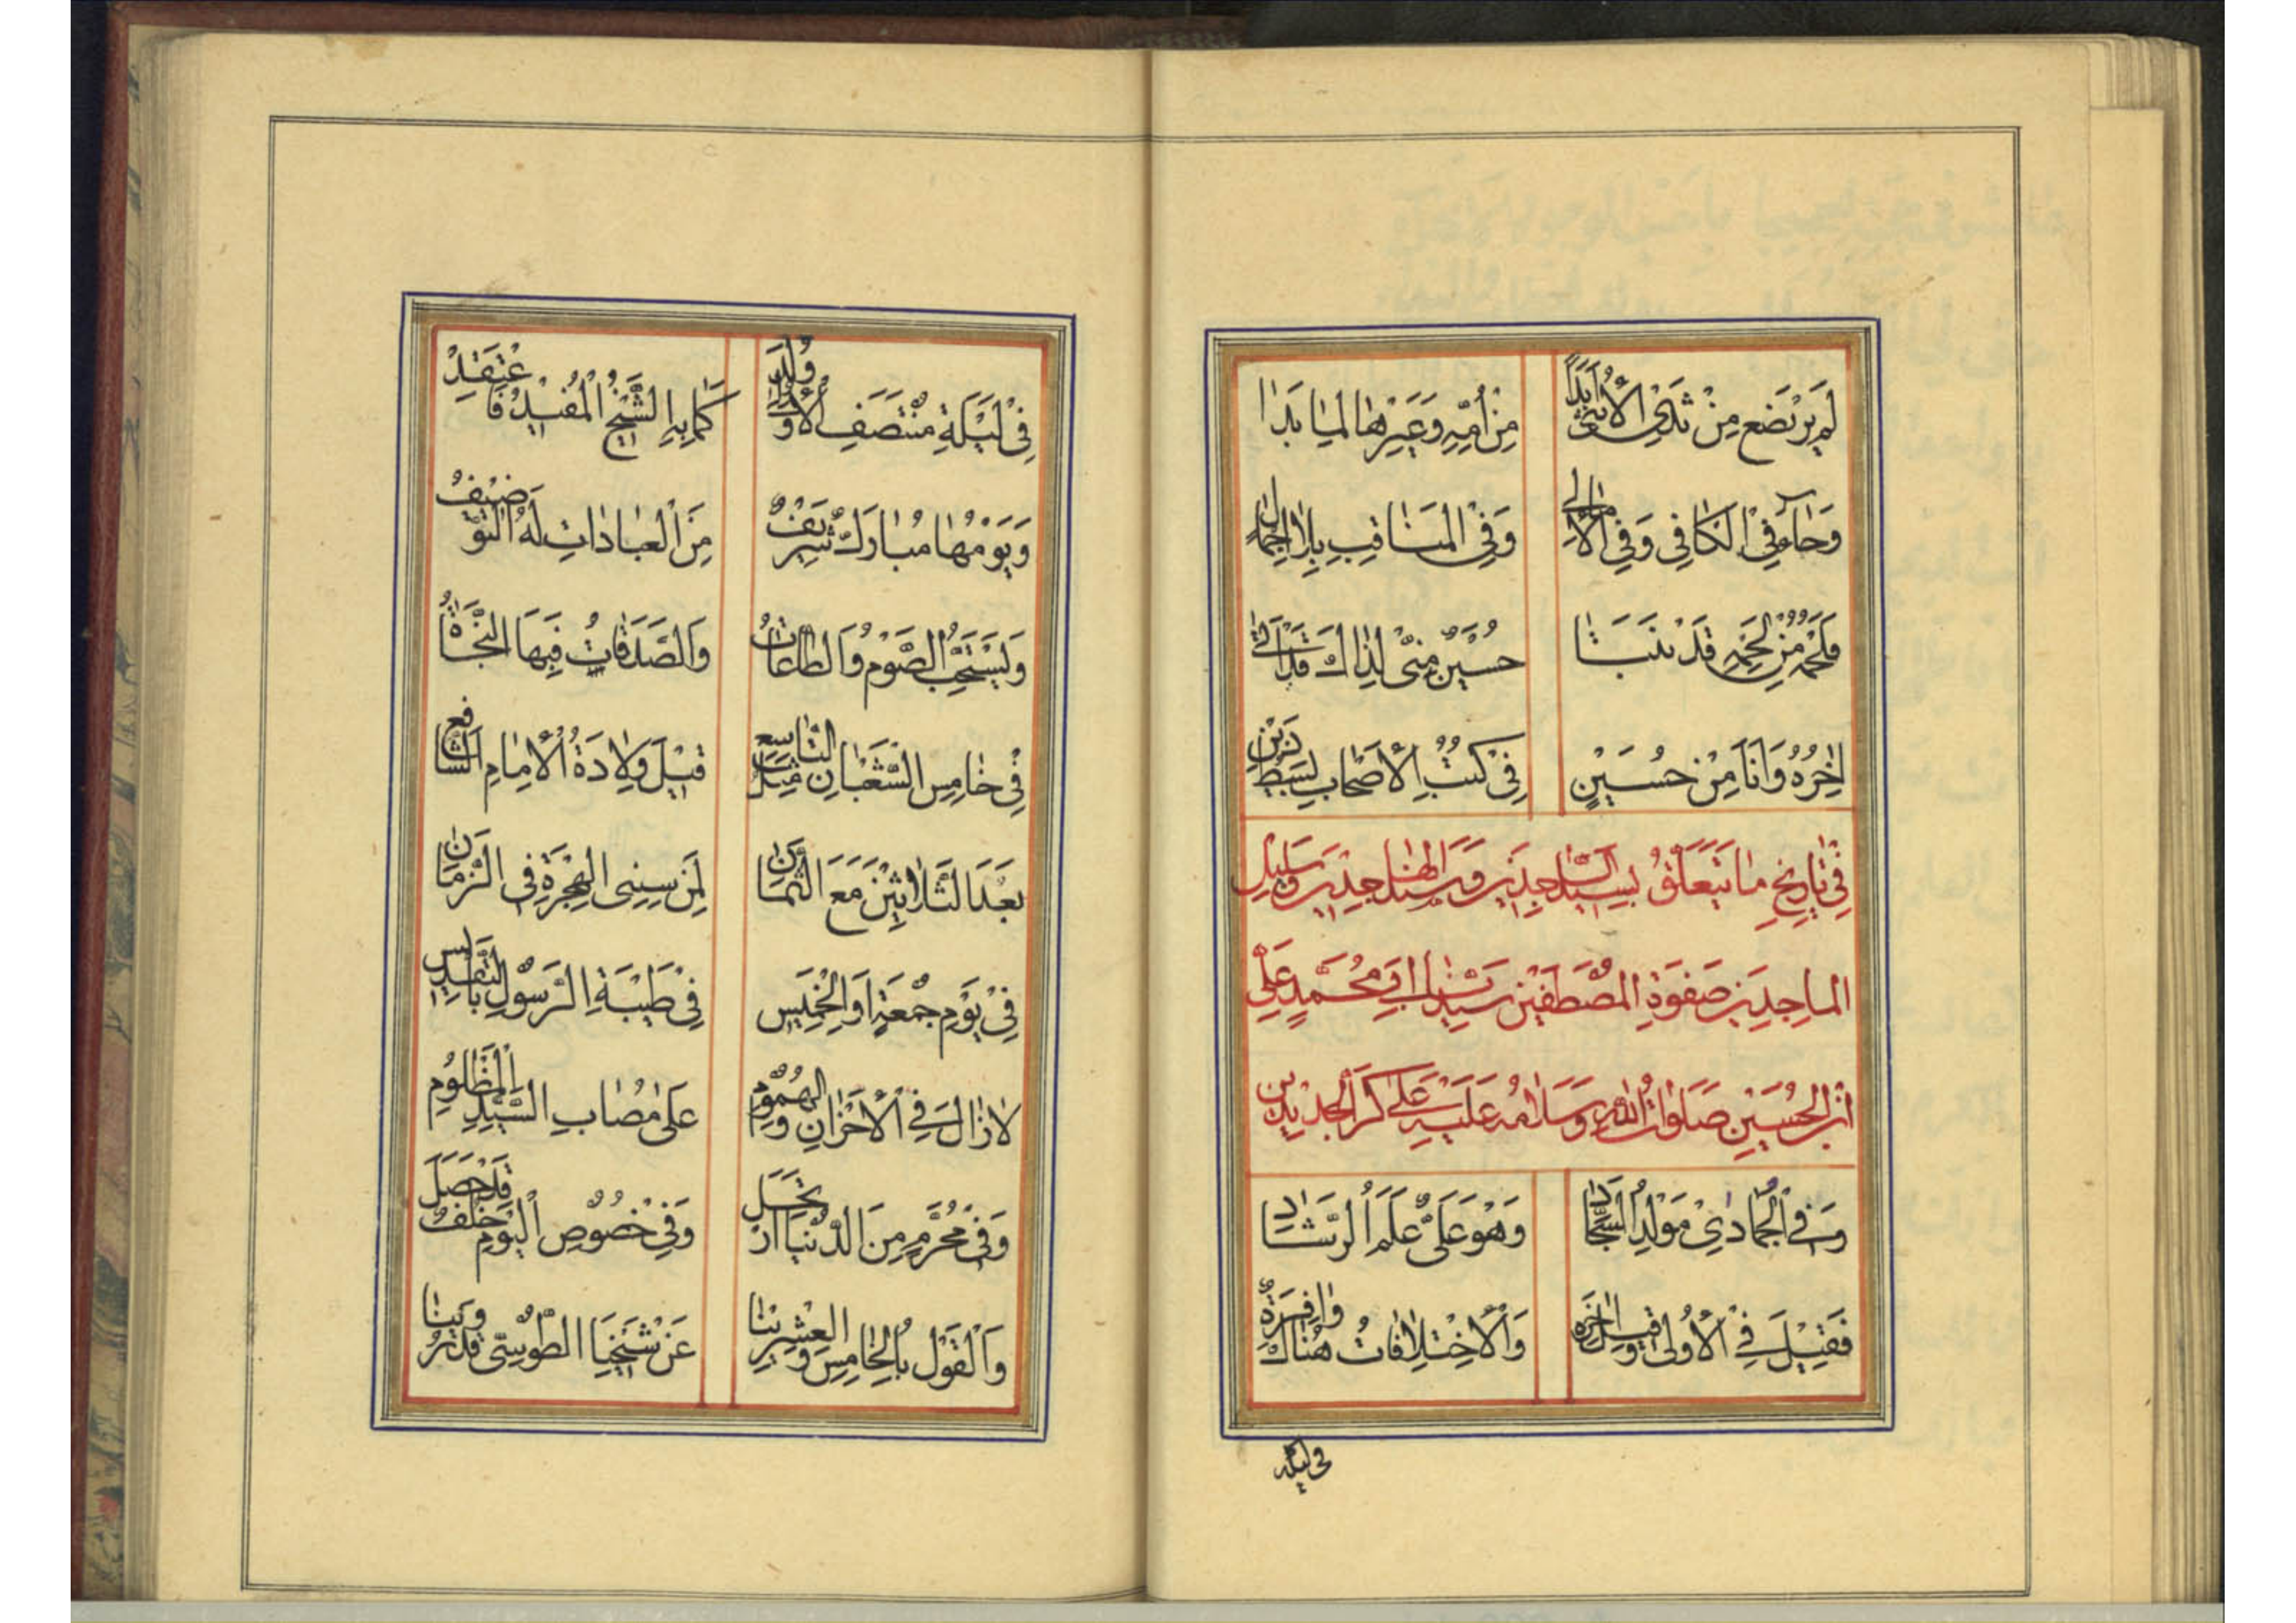 لَمْ يَرْتَضِعْ مِنْ ثَدْيِ الْأُنْثَى أَبَدًا مِنْ أُمِّهِ وَغَيْرِهَا لِمَا بَدَا
وَجَاءَ فِي الْكَافِي وَفِي الْأَمَالِي وَفِي الْمَنَاقِبِ بِلَا إِجْمَالِ
فَلَحْمُهُ مِنْ لَحْمِهِ قَدْ نَبَتَا حُسَيْنٌ مِنِّي لِذَاكَ قَدْ أَتَى
آخِرُهُ وَأَنَا مِنْ حُسَيْنٍ فِي كُتُبِ الْأَصْحَابِ
فِي تَارِيخِ مَا يَتَعَلَّقُ بِسَيِّدِ السَّاجِدِينَ وَسَنَدِ الْهَاجِدِينَ وَسَلِيلِ
الْمَاجِدِينَ صَفْوَةِ الْمُصْطَفَيْنَ سَيِّدِنَا أَبِي مُحَمَّدٍ عَلِيِّ
ابْنِ الْحُسَيْنِ صَلَوَاتُ اللّٰهِ وَسَلَامُهُ عَلَيْهِ عَلَى كَرِّ الْجَدِيدَيْنِ
وَفِي الْجُمَادَى مَوْلِدُ السَّجَّادِ وَهْوَ عَلِيٌّ عَلَمُ الرَّشَادِ
فَقِيلَ فِي الْأُولَى وَقِيلَ الْآخِرَةِ وَالْاِخْتِلَافَاتُ هُنَاكَ وَافِرَةٌ
فى ليلة
فِي لَيْلَةِ مُنْتَصَفِ الْأُولَى وُلِدَ كَمَا بِهِ الشَّيْخُ الْمُفِيدُ فَاعْتَقِدْ
وَيَوْمُهَا مُبَارَكٌ شَرِيفٌ مِنَ الْعِبَادَاتِ لَهُ التَّوْضِيفُ
وَيُسْتَحَبُّ الصَّوْمُ وَالطَّاعَاتُ وَالصَّدَقَاتُ فِيهَا النَّجَاةُ
فِي خَامِسِ الشَّعْبَانِ قِيلَ التَّاسِعِ قَبْلَ وِلَادَةُ الْإِمَامِ الشَّافِعِ
بَعْدَ الثَّلَاثِينَ مَعَ الثَّمَانِ مِنْ سِنِي الْهِجْرَةِ فِي الزَّمَانِ
فِي يَوْمِ جُمْعَةٍ أَوِ الْخَمِيسِ فِي طَيْبَةِ الرَّسُولِ بِالتَّقْدِيسِ
لَا زَالَ فِي الْأَحْزَانِ وَالْهُمُومِ عَلَى مُصَابِ السَّيِّدِ الْمَظْلُومِ
وَفِي مُحَرَّمٍ مِنَ الدُّنْيَا ارْتَحَلَ وَفِي خُصُوصِ الْيَوْمِ خُلْفٌ قَدْ حَصَلَ
وَالْقَوْلُ بِالْخَامِسِ وَالْعِشْرِينَا عَنْ شَيْخِنَا الطُّوسِيِّ قَدْ رُوِّينَا